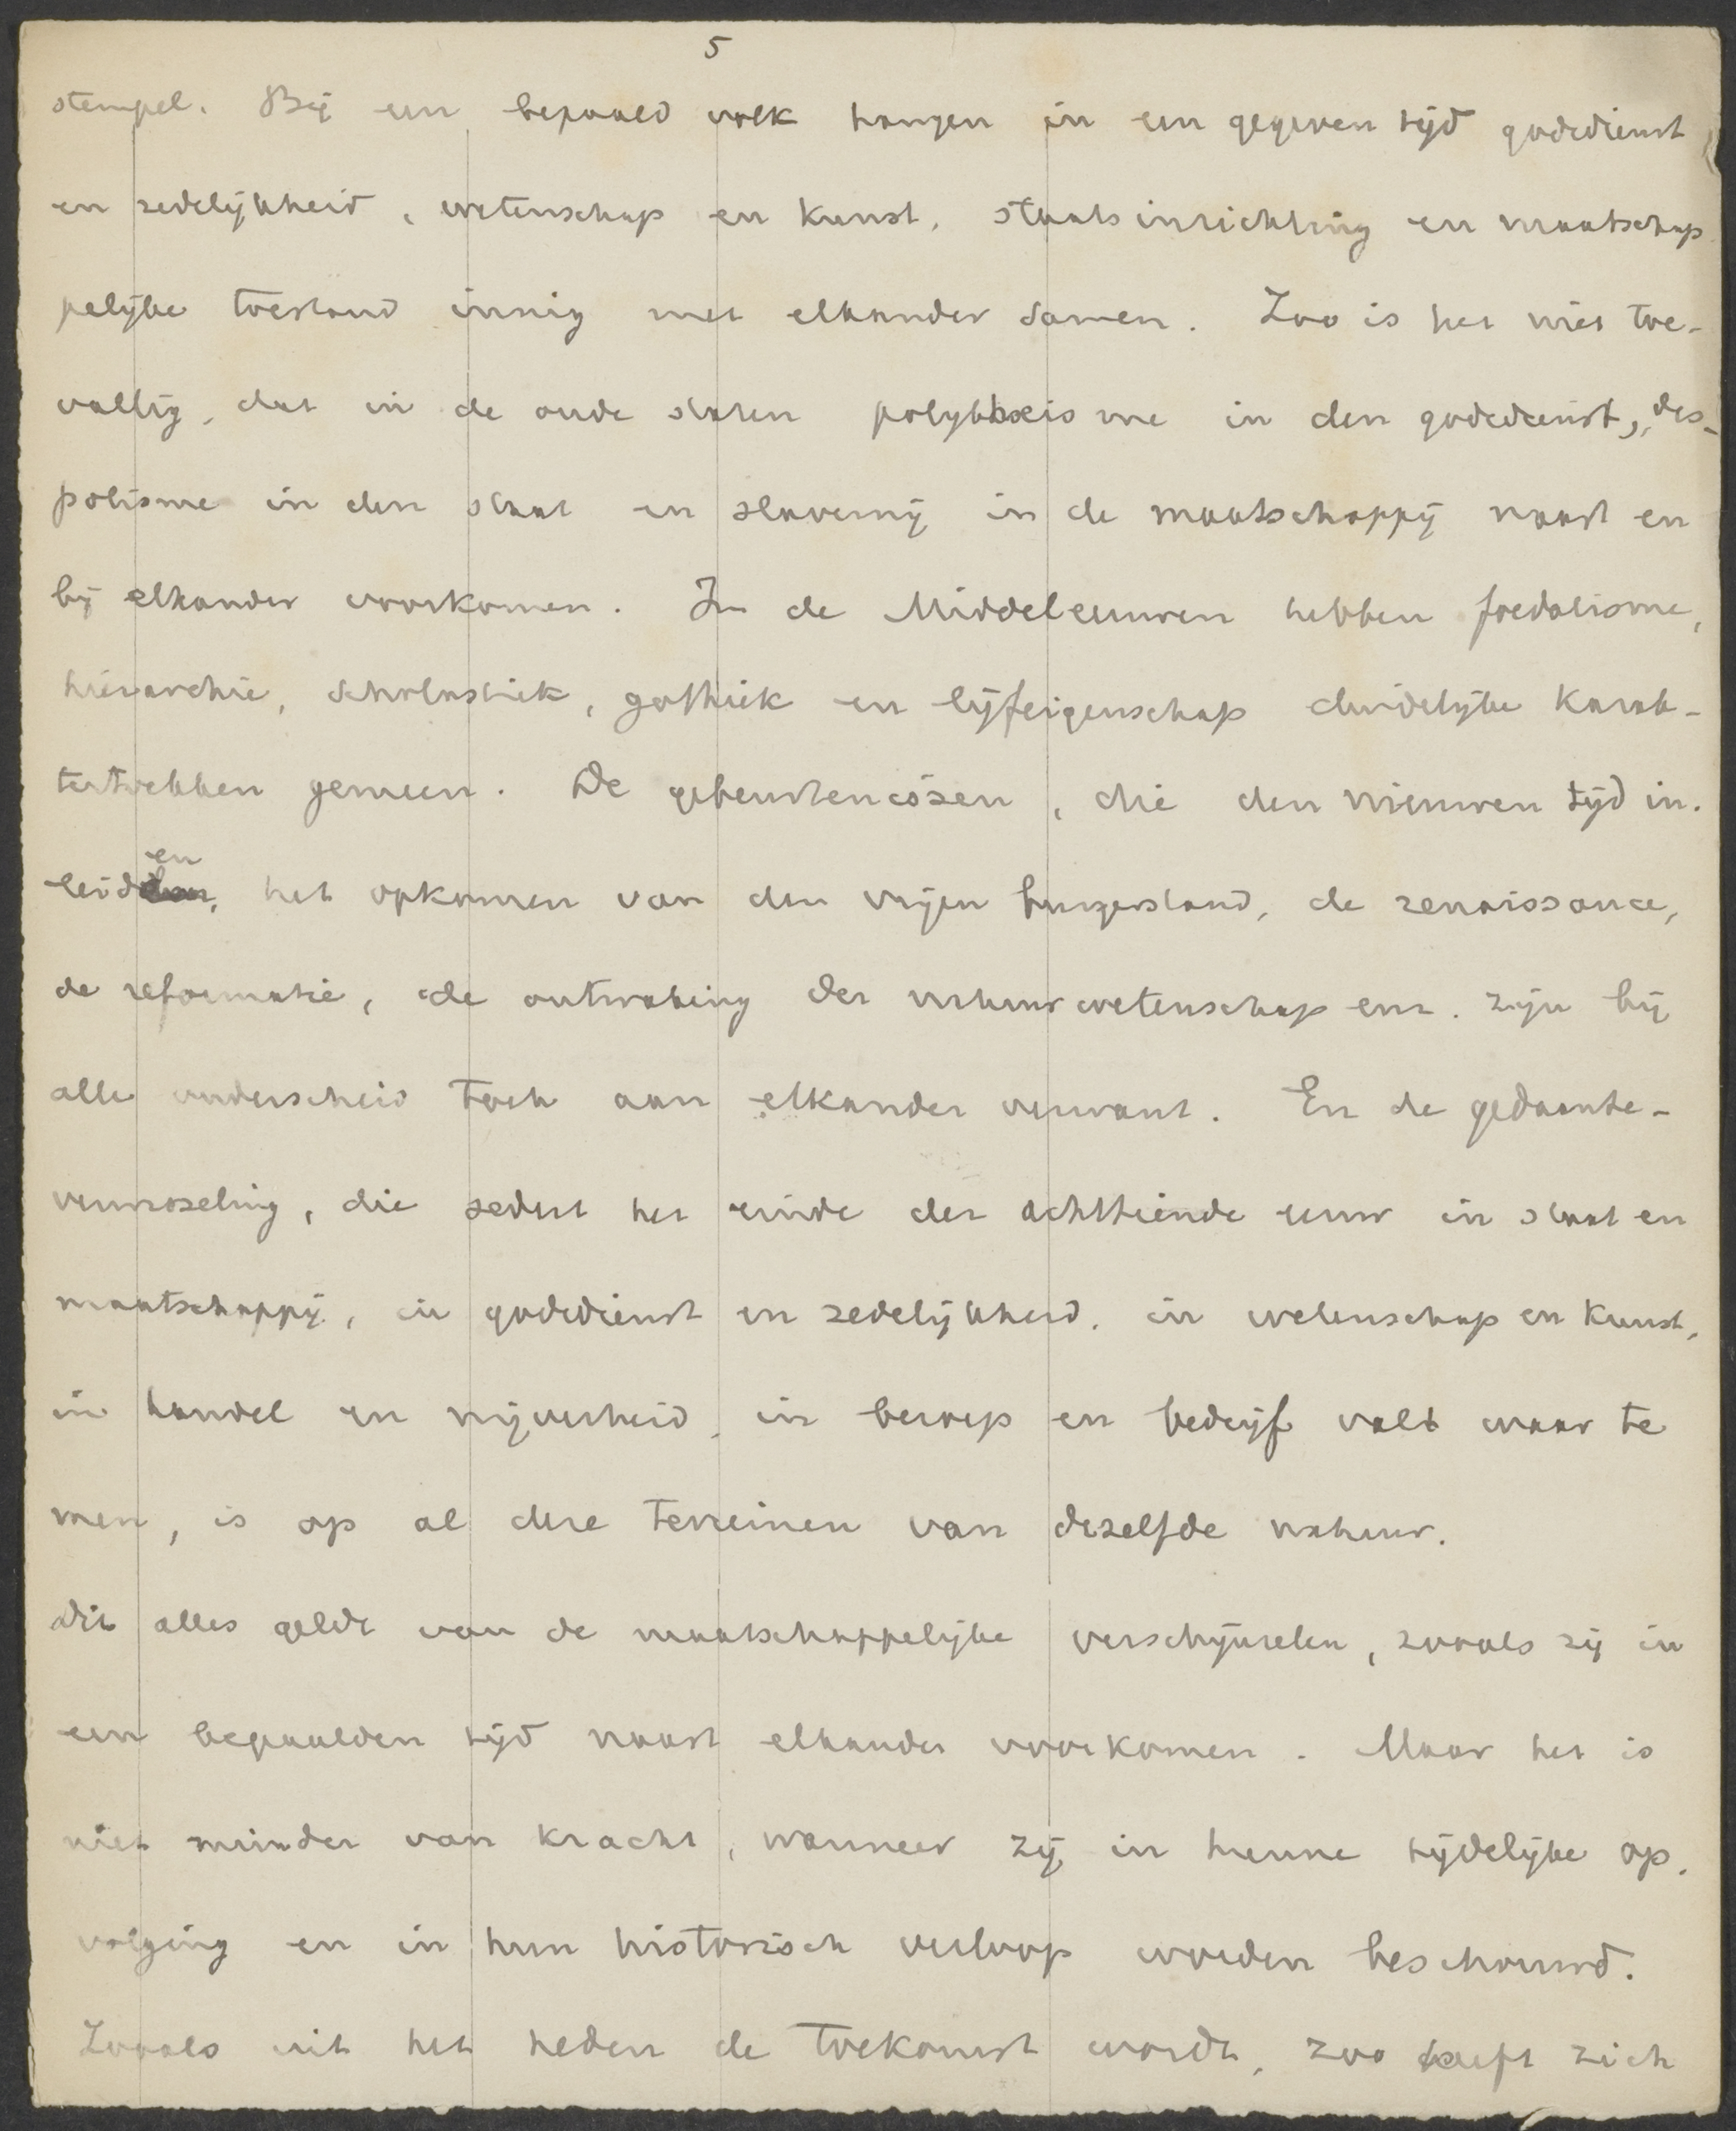 5
stempel. Bij een bepaald volk hangen in een gegeven tijd godsdienst
en zedelijkheid, wetenschap en kunst, staatsinrichting en maatschap
pelijke toestand innig met elkander samen. Zoo is het niet toe-
vallig, dat in de oude staten polytheisme in den godsdienst, des-
potisme in den staat en slavernij in de maatschappij naast en
bij elkander voorkomen. In de Middeleeuwen hebben foedalisme,
hierarchie, scholastiek, gothiek en lijfeigenschap duidelijke karak-
tertrekken gemeen. De gebeurtenissen, die den nieuwen tijd in-
leidden, het opkomen van den vrijen burgerstand, de renaissance,
de reformatie, de ontwaking der natuurwetenschap enz. zijn bij
alle onderscheid toch aan elkander verwant. En de gedaante-
verwisseling, die sedert het einde der achttiende eeuw in staat en
maatschappij, in godsdienst en zedelijkheid, in wetenschap en kunst,
in handel en nijverheid, in beroep en bedrijf valt waar te
men, is op al deze terreinen van dezelfde natuur.
Dit alles geldt van de maatschappelijke verschijnselen, zooals zij in
een bepaalden tijd naast elkander voorkomen. Maar het is
niet minder van kracht, wanneer zij in hunne tijdelijke op-
volging en in hun historisch verloop worden beschouwd.
Zooals uit het heden de toekomst wordt, zoo heeft zich